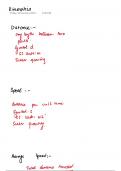 Kinematics
Distance :-
any length between two
points
Symbol d
SI unit m
Scalar quantity
Speed :-
Distance per unit time
Symbol s
Scalar quantity
Average Speed:-
Total distance travelled